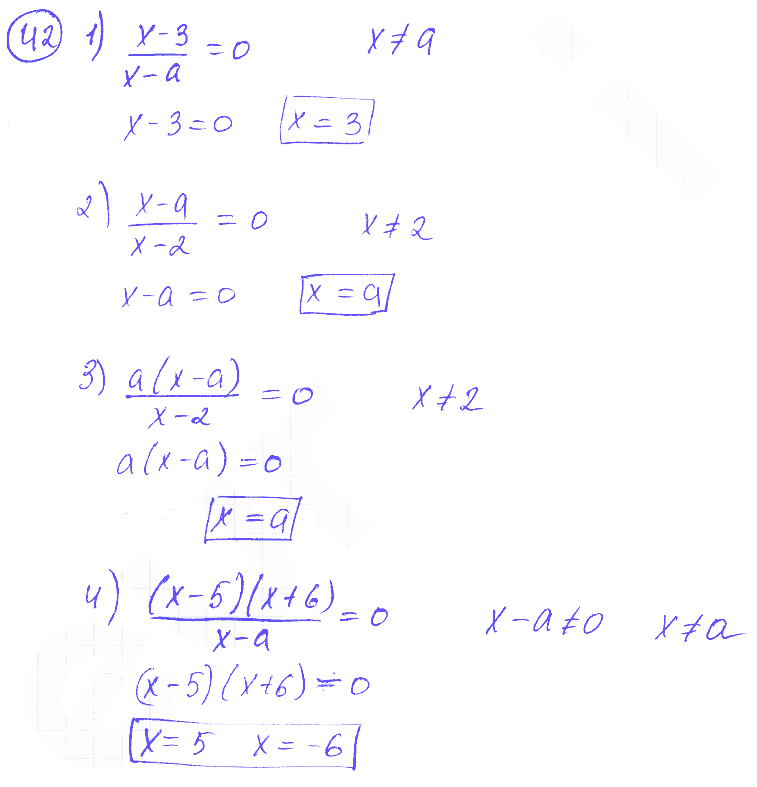 42 1) (x-3)/(x-a) = 0 x ≠ a
x-3=0 x = 3
2) (x-a)/(x-2) = 0 x ≠ 2
x-a=0 x = a
3) a(x-a)/(x-2) = 0 x ≠ 2
a(x-a)=0
x = a
4) (x-5)(x+6)/(x-a) = 0 x-a≠0 x≠a
(x-5)(x+6)=0
x=5 x=-6